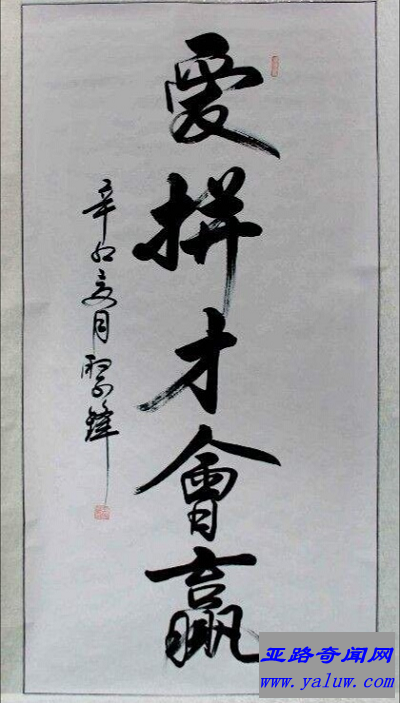 愛拼才會贏
辛卯夏月
亚路奇闻网
www.yaluw.com